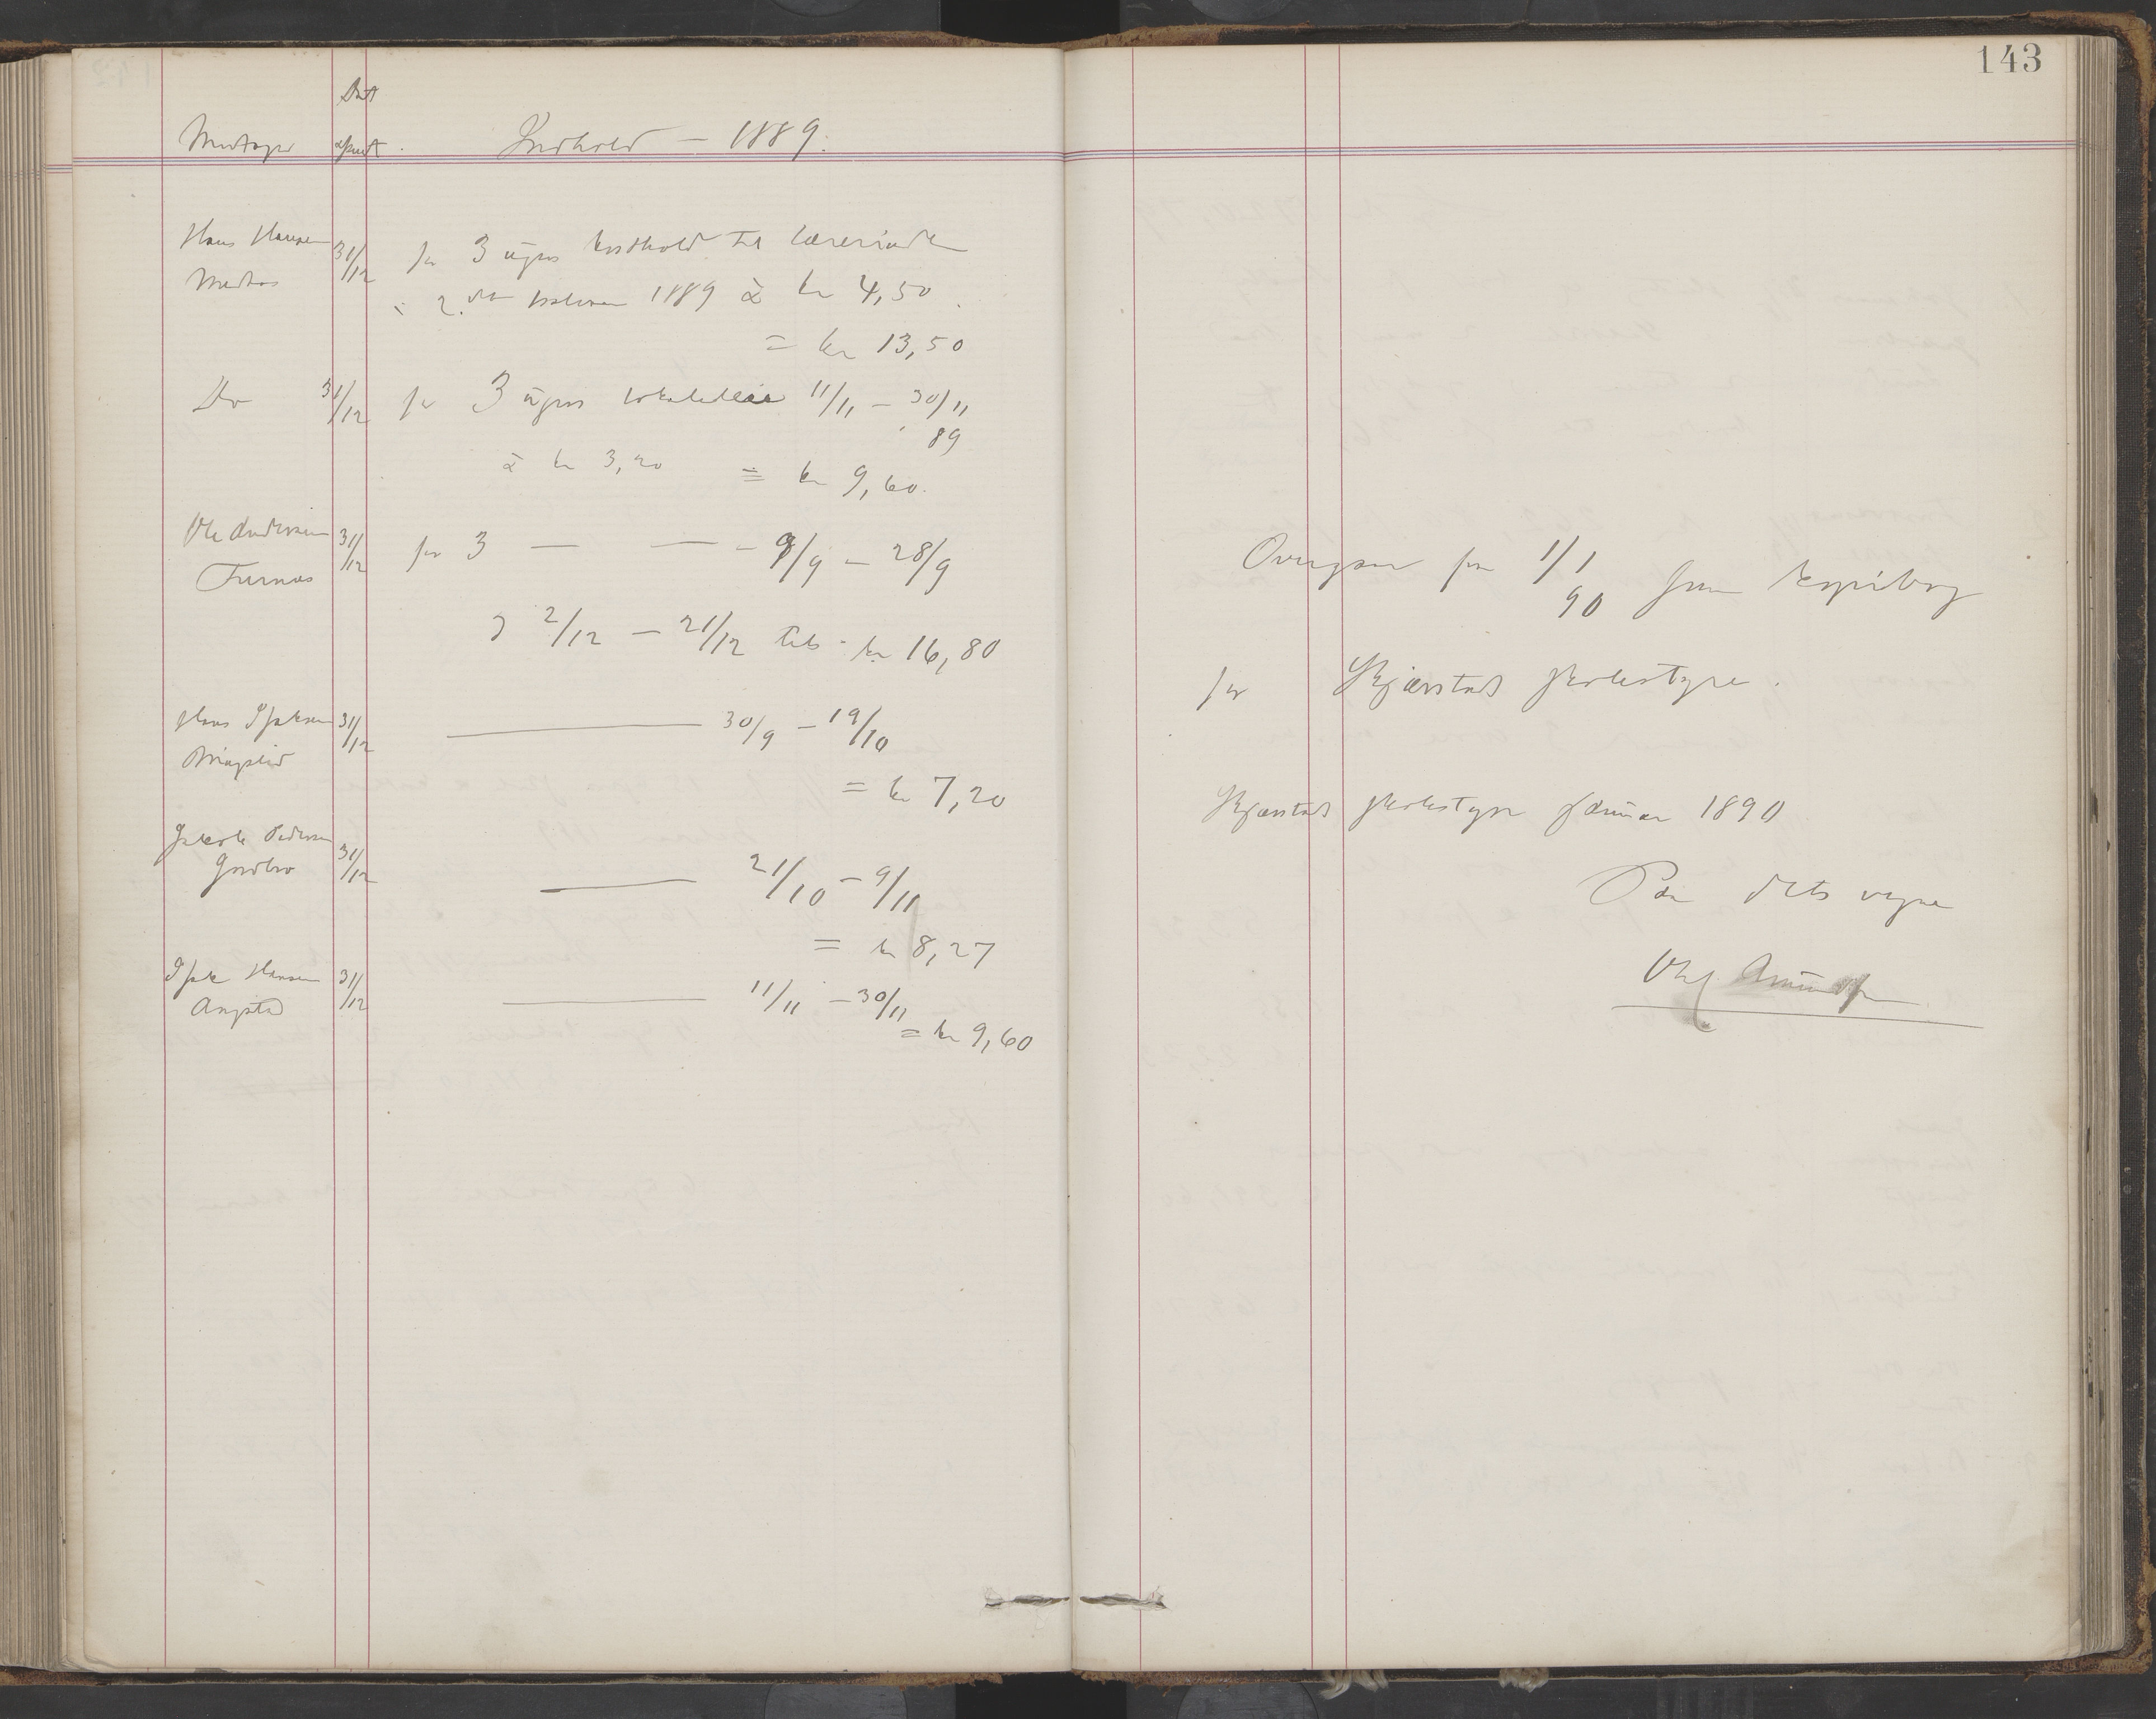 Dat
Modtager
Indhold – 1889.
Hans Hansen 31/12 for 3 ugers kosthold til lærerinden
Medaas i 2.det halvaar 1889 à kr 4,50.
= kr 13,50
Do 31/12 for 3 ugers lokalleie 11/11 – 30/11
89
à kr 3,20 = kr 9,60.
Ole Andersen 31/12 for 3 — — - 9/9 – 28/9
Furnæs
og 2/12 – 21/12 tils. kr 16,80
Hans 31/12 — 30/9 – 19/10
= kr 7,20
Jakob Pedersen
31/12 — 21/10 – 9/11
= kr 8,27
Hansen 31/12 — 11/11 – 30/11
= kr 9,60
143
Overgaar fra 1/1
90 kopibog
for Skjærstad skolestyre.
Skjærstad skolestyre januar 1890
Paa dets vegne